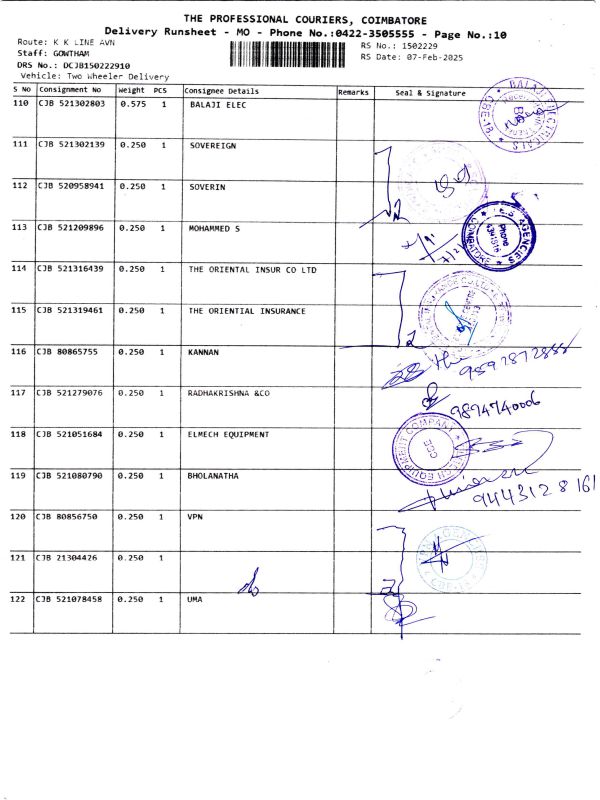 THE PROFESSIONAL COURIERS, COIMBATORE
Delivery Runsheet - MO - Phone No.:0422-3505555 - Page No.:10
Route: K K LINE AVN
RS No.: 1502229
Staff: GOWTHAM
RS Date: 07-Feb-2025
DRS No.: DCJB150222910
Vehicle: Two Wheeler Delivery
S No Consignment No Weight PCS Consignee Details Remarks Seal & Signature
110 CJB 521302803 0.575 1 BALAJI ELEC
BALAJI ELECTRICALS
CBE-18
111 CJB 521302139 0.250 1 SOVEREIGN
112 CJB 520958941 0.250 1 SOVERIN
2
113 CJB 521209896 0.250 1 MOHAMMED S
AGENCIES
Phone
COIMBATORE
114 CJB 521316439 0.250 1 THE ORIENTAL INSUR CO LTD
115 CJB 521319461 0.250 1 THE ORIENTIAL INSURANCE
2
116 CJB 80865755 0.250 1 KANNAN
9597872888
117 CJB 521279076 0.250 1 RADHAKRISHNA &CO
9894740006
118 CJB 521051684 0.250 1 ELMECH EQUIPMENT
EQUIPMENT COMPANY
119 CJB 521080790 0.250 1 BHOLANATHA
9443128161
120 CJB 80856750 0.250 1 VPN
121 CJB 21304426 0.250 1
122 CJB 521078458 0.250 1 UMA